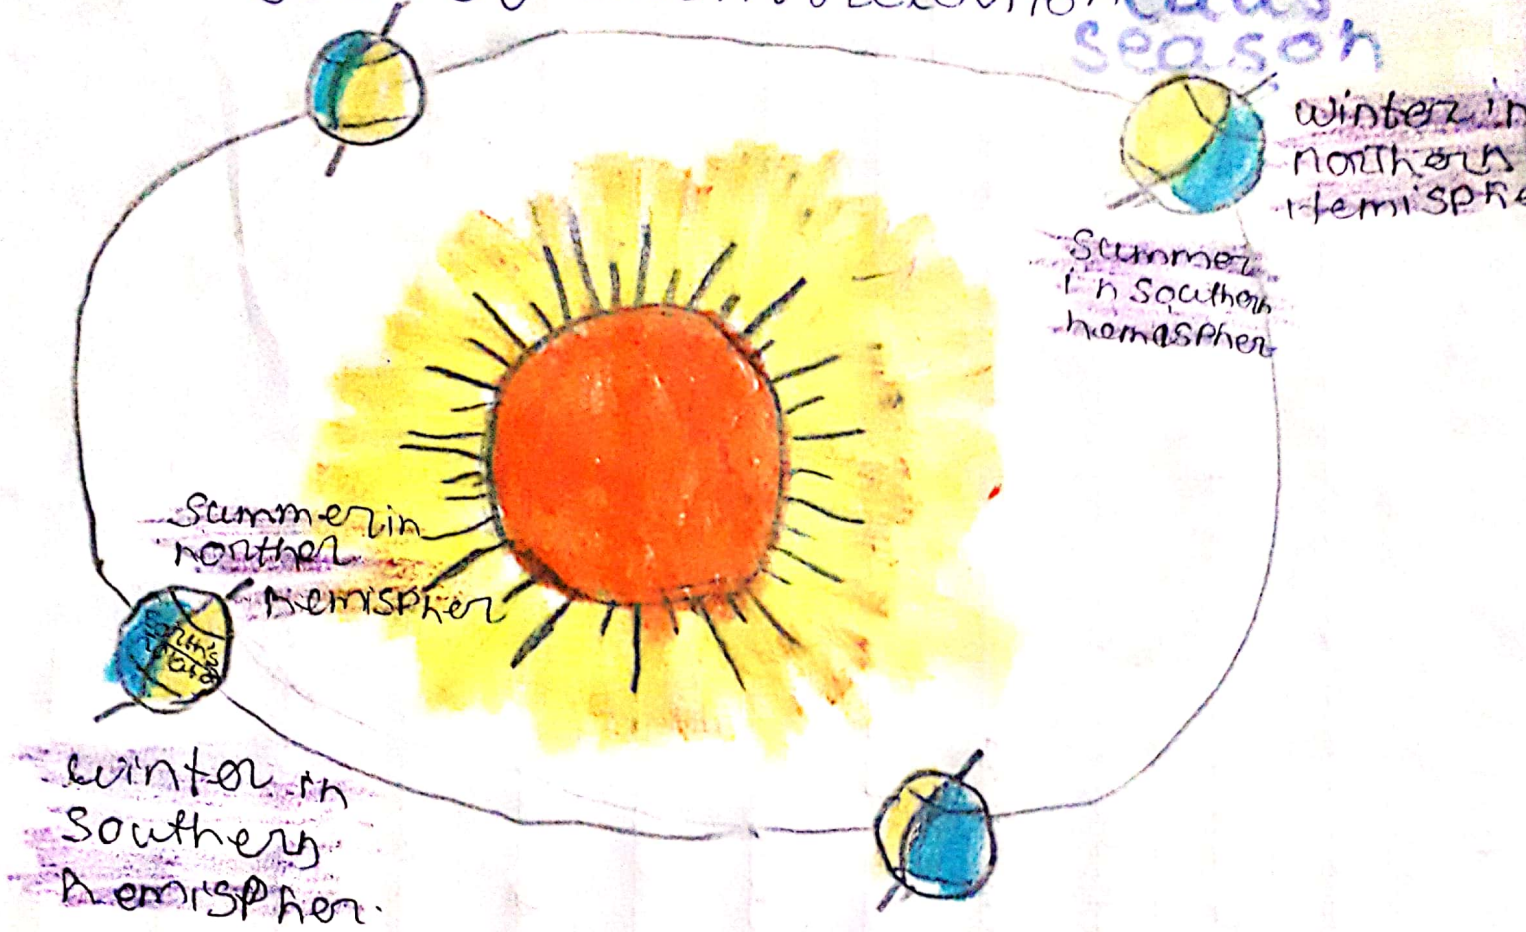 season
winter in
northern
Hemisphe
Summer
in Southern
hemaspher
Summer in
norther
hemispher
winter in
Southern
hemispher.